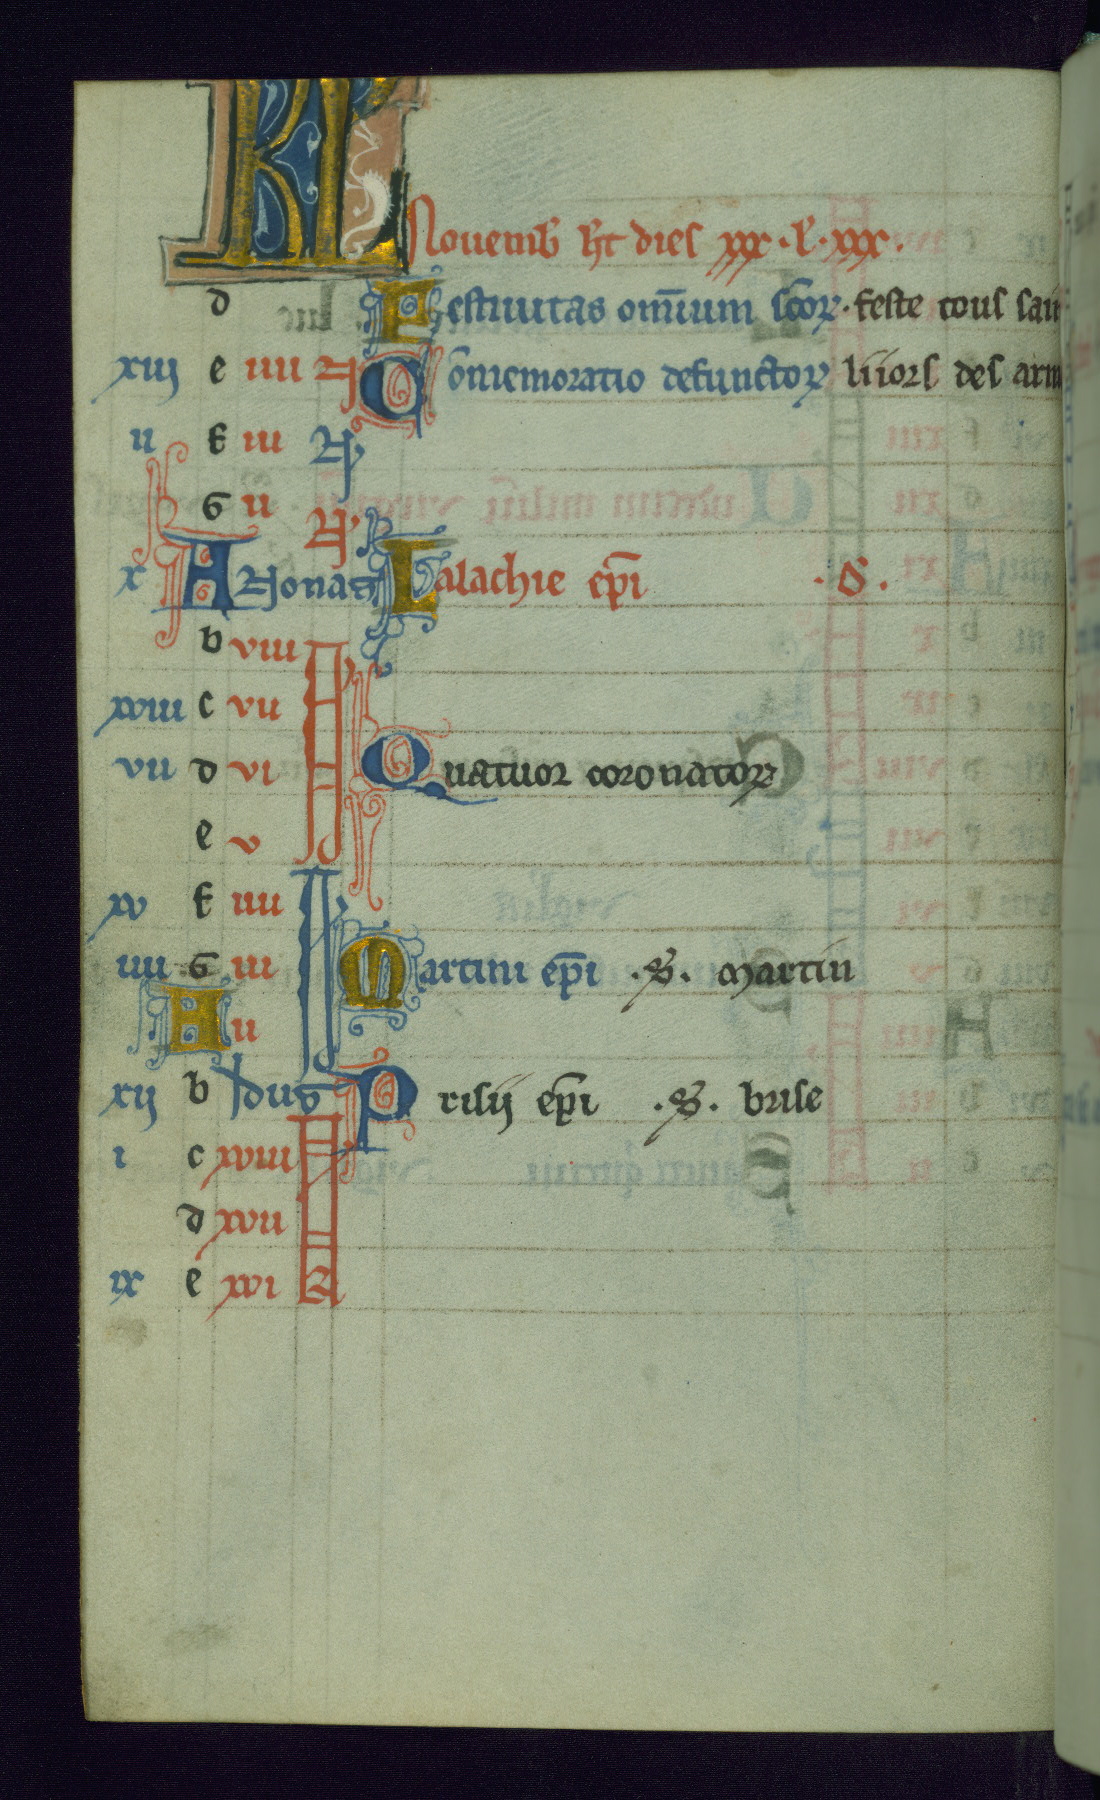 KL Nouemb̃ h̃t dies xxx · l · xxx ·
d Festiuitas om̃ium sc̃oꝝ · feste tous sain
xiij e iiii N Com̃emoratio defunctoꝝ li iors des arm
ii f iii N
G ii N
x A Nonas Malachie ep̃i · S ·
b viii I
xviii c vii
vii d vi D Quatuor coronatoꝝ
e v
xv f iiii I
iiii G iii Martini ep̃i · S · martin
A ii
xij b Idus Brisij ep̃i · S · brise
i c xviii K
d xvii
ix e xvi